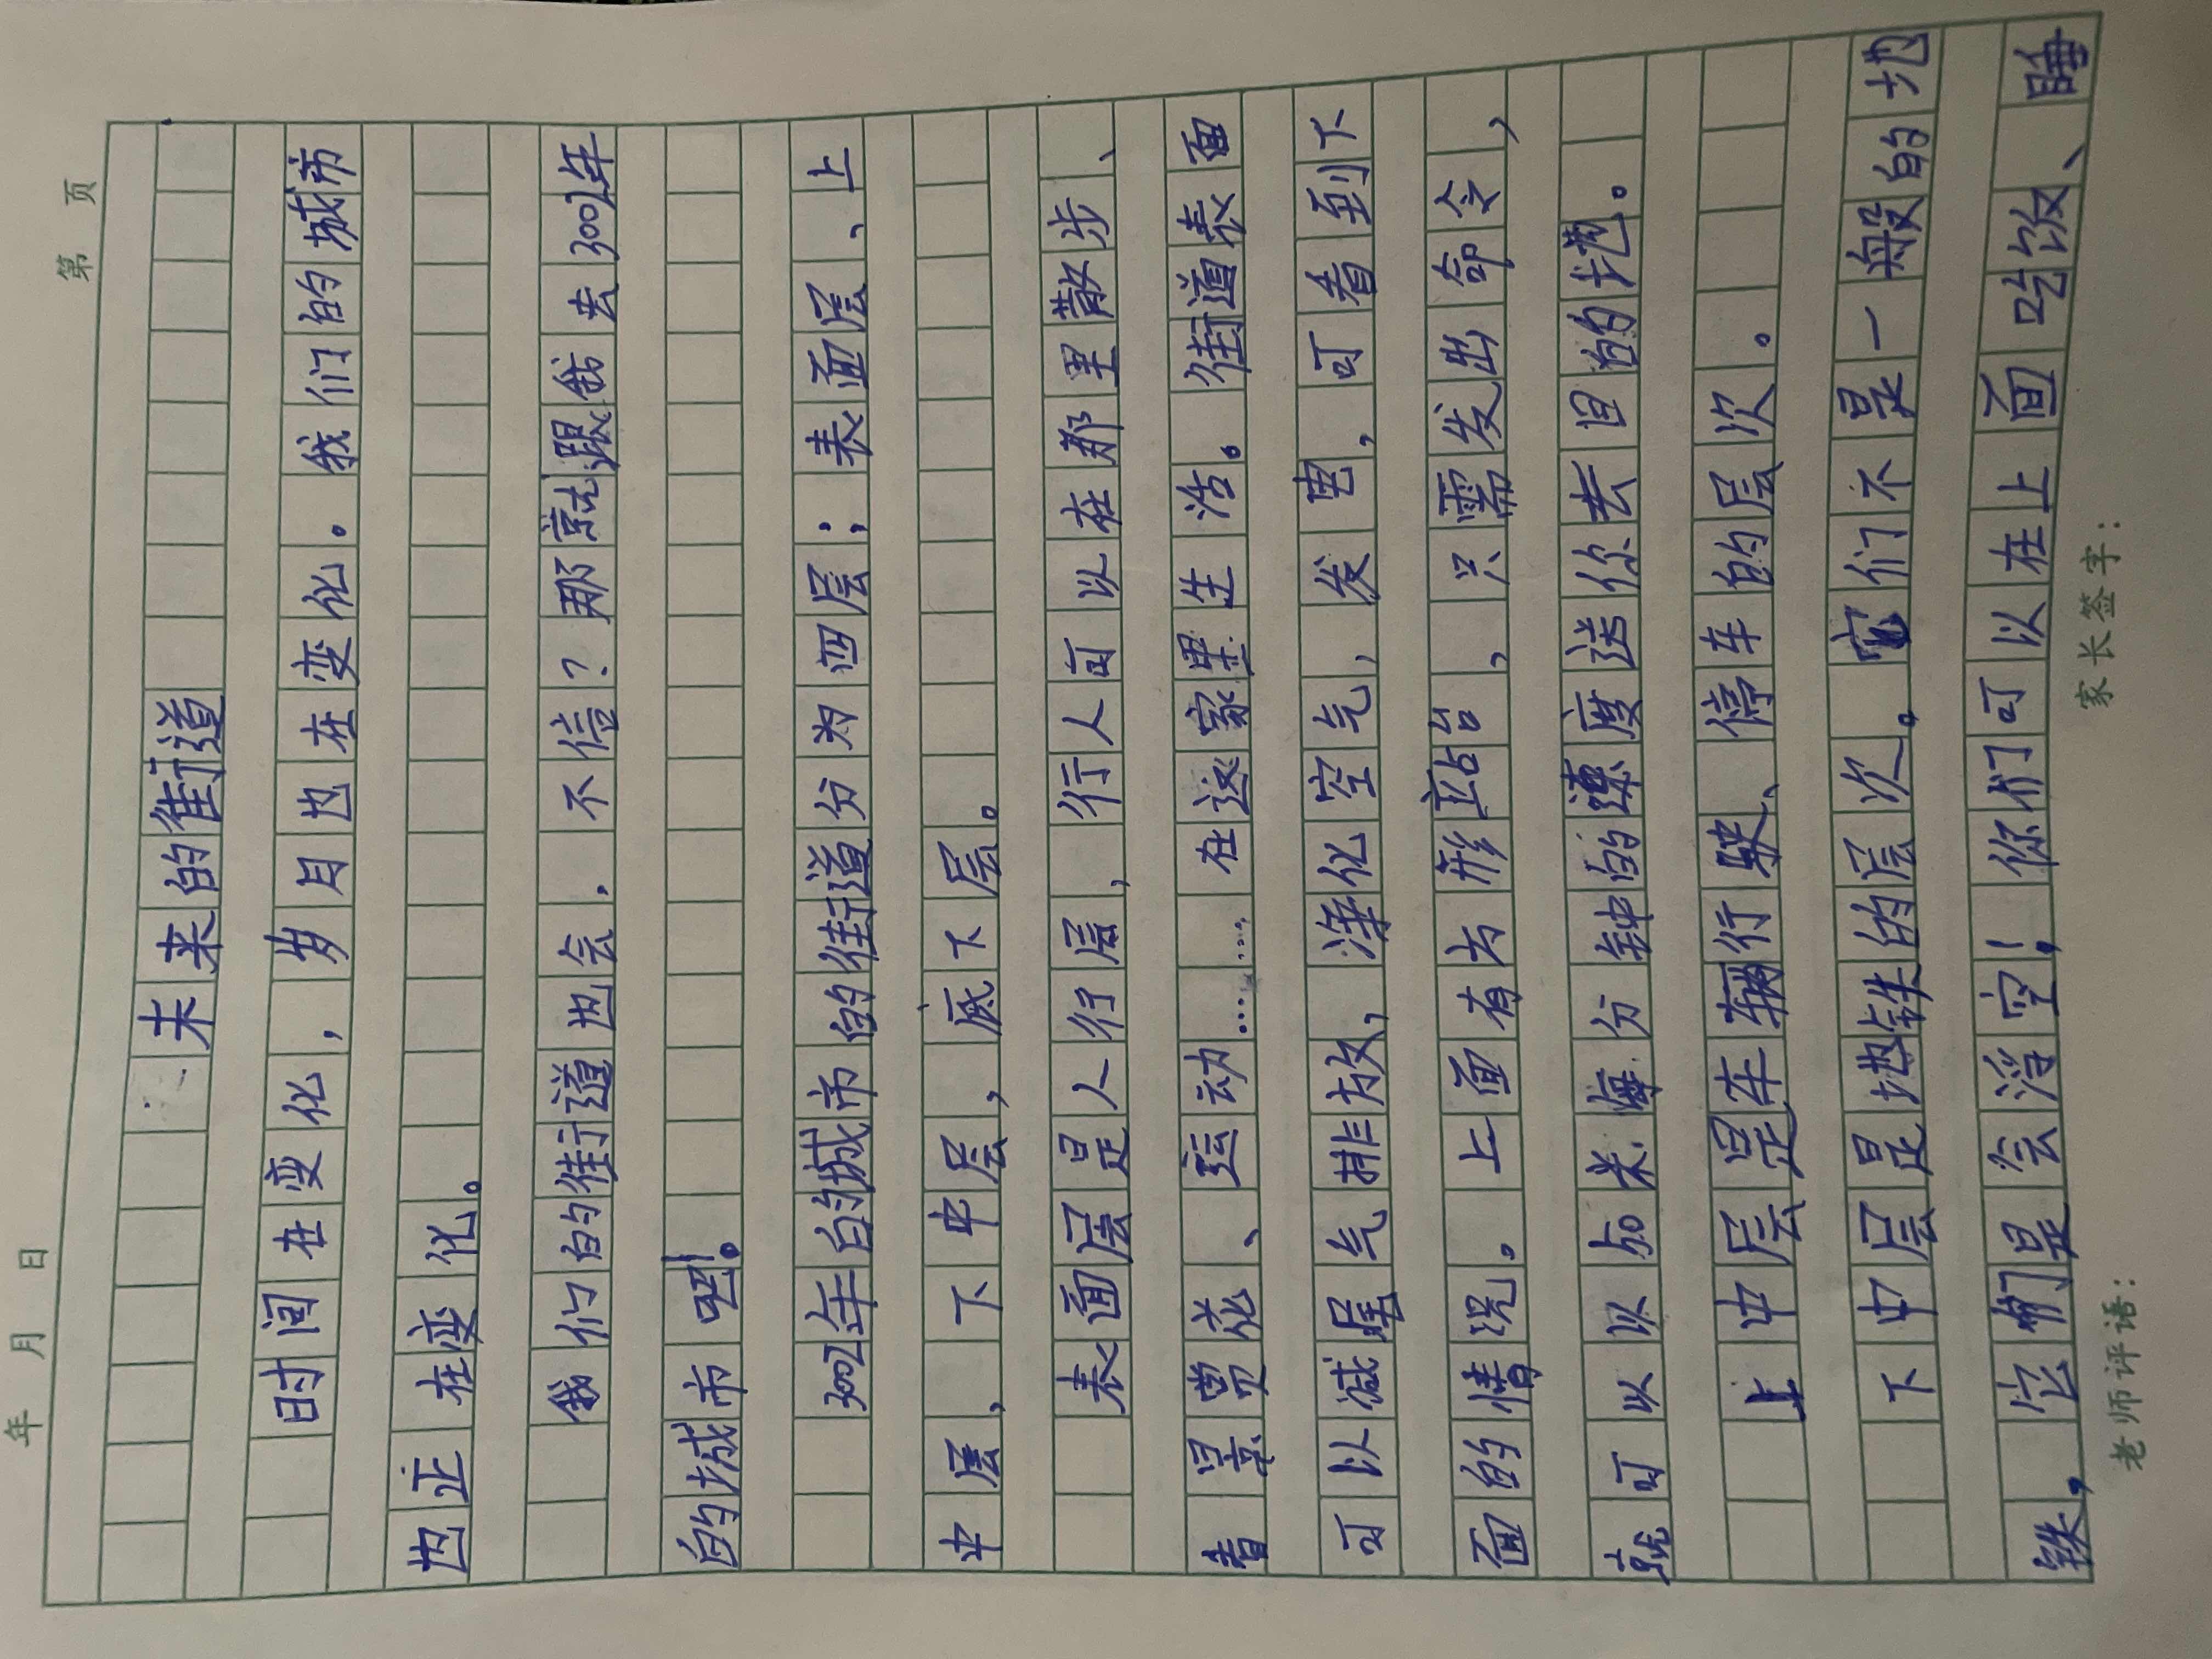 年 月 日 第 页
未来的街道
时间在变化，岁月也在变化。我们的城市
也正在变化。
我们的街道也会，不信？那就跟我去3002年
的城市吧！。
3002年的城市的街道分为四层；表面层、上
中层、下中层，底下层。
表面层是人行层，行人可以在那里散步、
看景赏花、运动……在这家里生活。街道表面
可以减尾气排放，净化空气，发电，可看到下
面的情况。上面有方形站台，只需发出命令，
就可以以500米每分钟的速度送你去目的地。
上中层是车辆行驶、停车的层次。
下中层是地铁的层次。它们不是一般的地
铁，它们是会浮空！你们可以在上面吃饭、睡
老师评语： 家长签字：